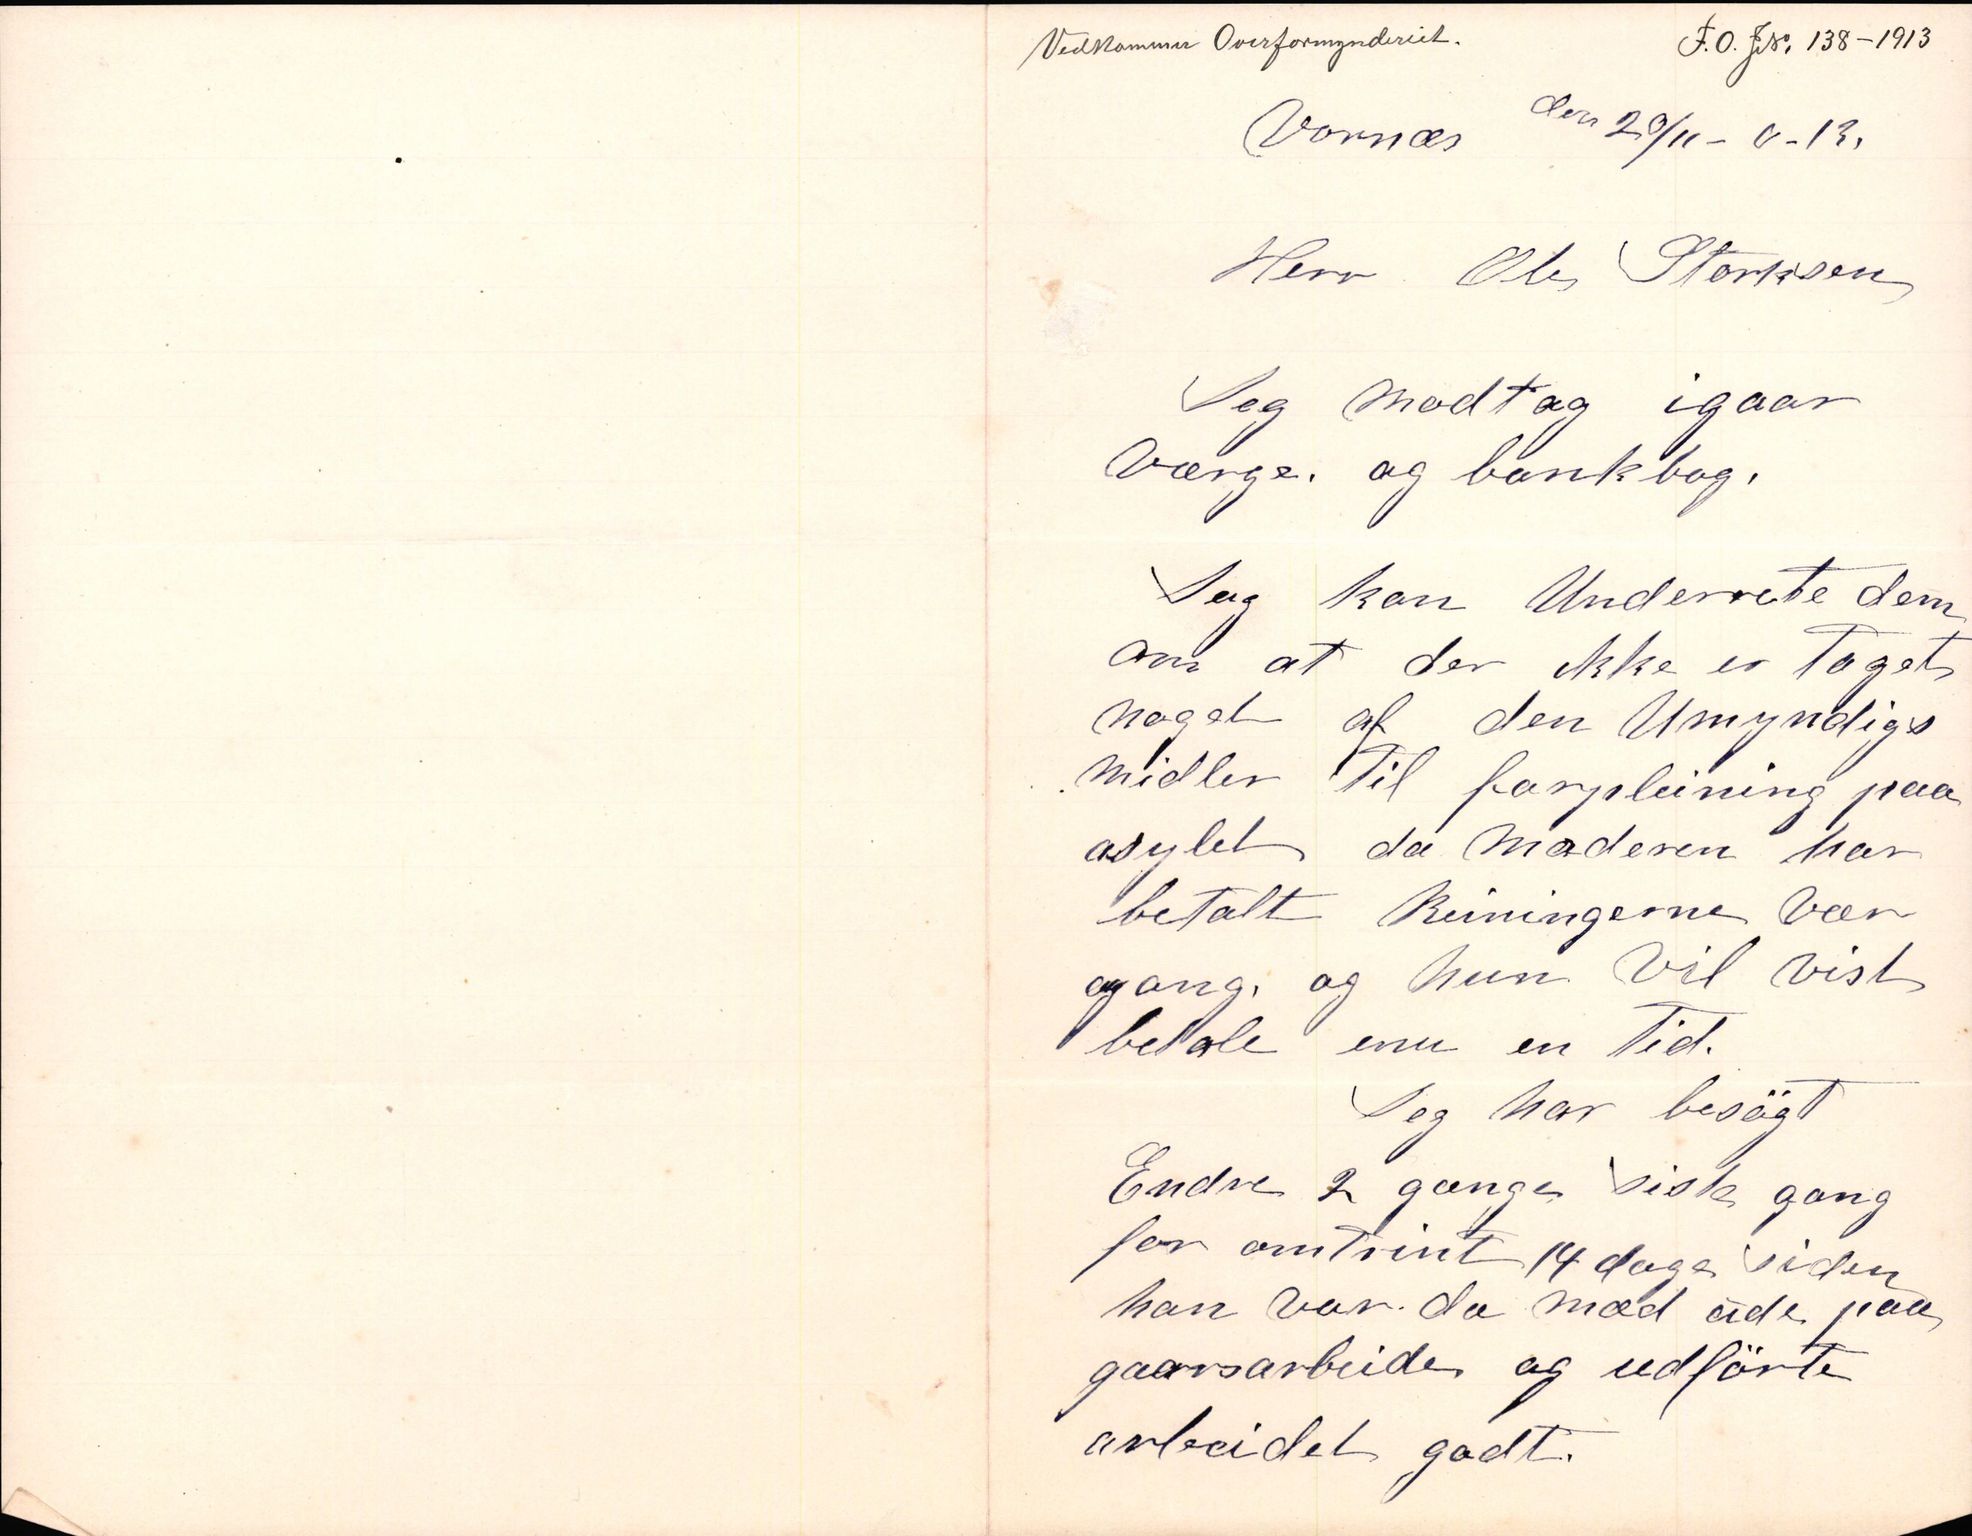 Vedkommer Overformynderiet. F.O. J.No. 138-1913
Vornæs den 20/11 - 0 - 13.
Herr Ole Storksen
Jeg modtog igaar
Værge. og bankbog.
Jeg kan Underrete dem
om at der ikke er taget
noget af den Umyndigs
midler til forpleining paa
asylet da moderen har
betalt Reiningerne vær
gang. og hun vil vist
betale enu en tid.
Jeg har besögt
Endre 2 gange siste gang
for omtrint 14 dage siden
han var da med ude paa
gaarsarbeide og udförte
arbeidet godt.